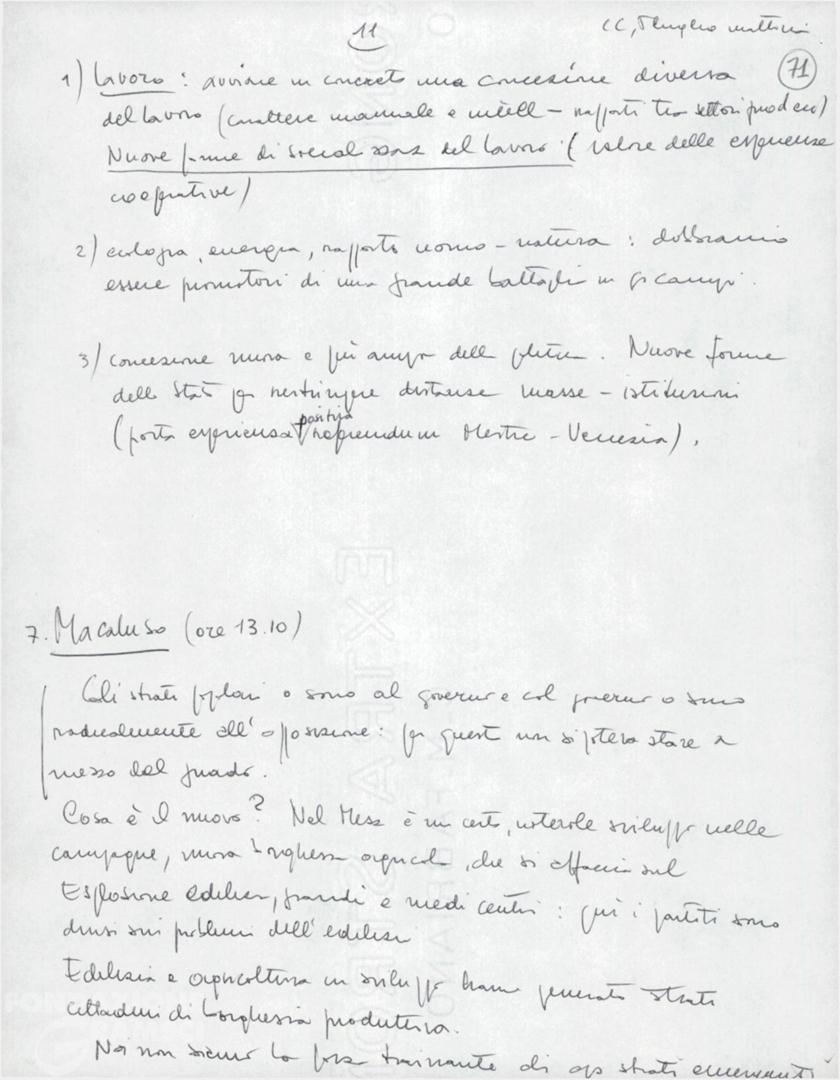 11
CC, 5 luglio mattina
71
1) Lavoro : avviare in concreto una concezione diversa
del lavoro (carattere manuale e intell – rapporti tra settori prod eco)
Nuove forme di social zzaz del lavoro (valore delle esperienze
cooperative)
2) ecologia, energia, rapporto uomo – natura : dobbiamo
essere promotori di una grande battaglia in qs campi.
3) concezione nuova e più ampia della politica. Nuove forme
dello Stato per restringere distanze masse – istituzioni
positiva
(porta esperienza referendum Mestre – Venezia).
7. Macaluso (ore 13.10)
Gli strati popolari o sono al governo e col governo o sono
radicalmente all'opposizione : per questo non si poteva stare a
mezzo del guado.
Cosa è il nuovo? Nel Mezz è un certo, notevole sviluppo nelle
campagne, nuova borghesia agricola, che si affaccia sul
Esplosione edilizia, grandi e medi centri : qui i partiti sono
divisi sui problemi dell'edilizia
Edilizia e agricoltura in sviluppo hanno generato strati
cittadini di borghesia produttiva.
Noi non siamo la forza trainante di qs strati emergenti